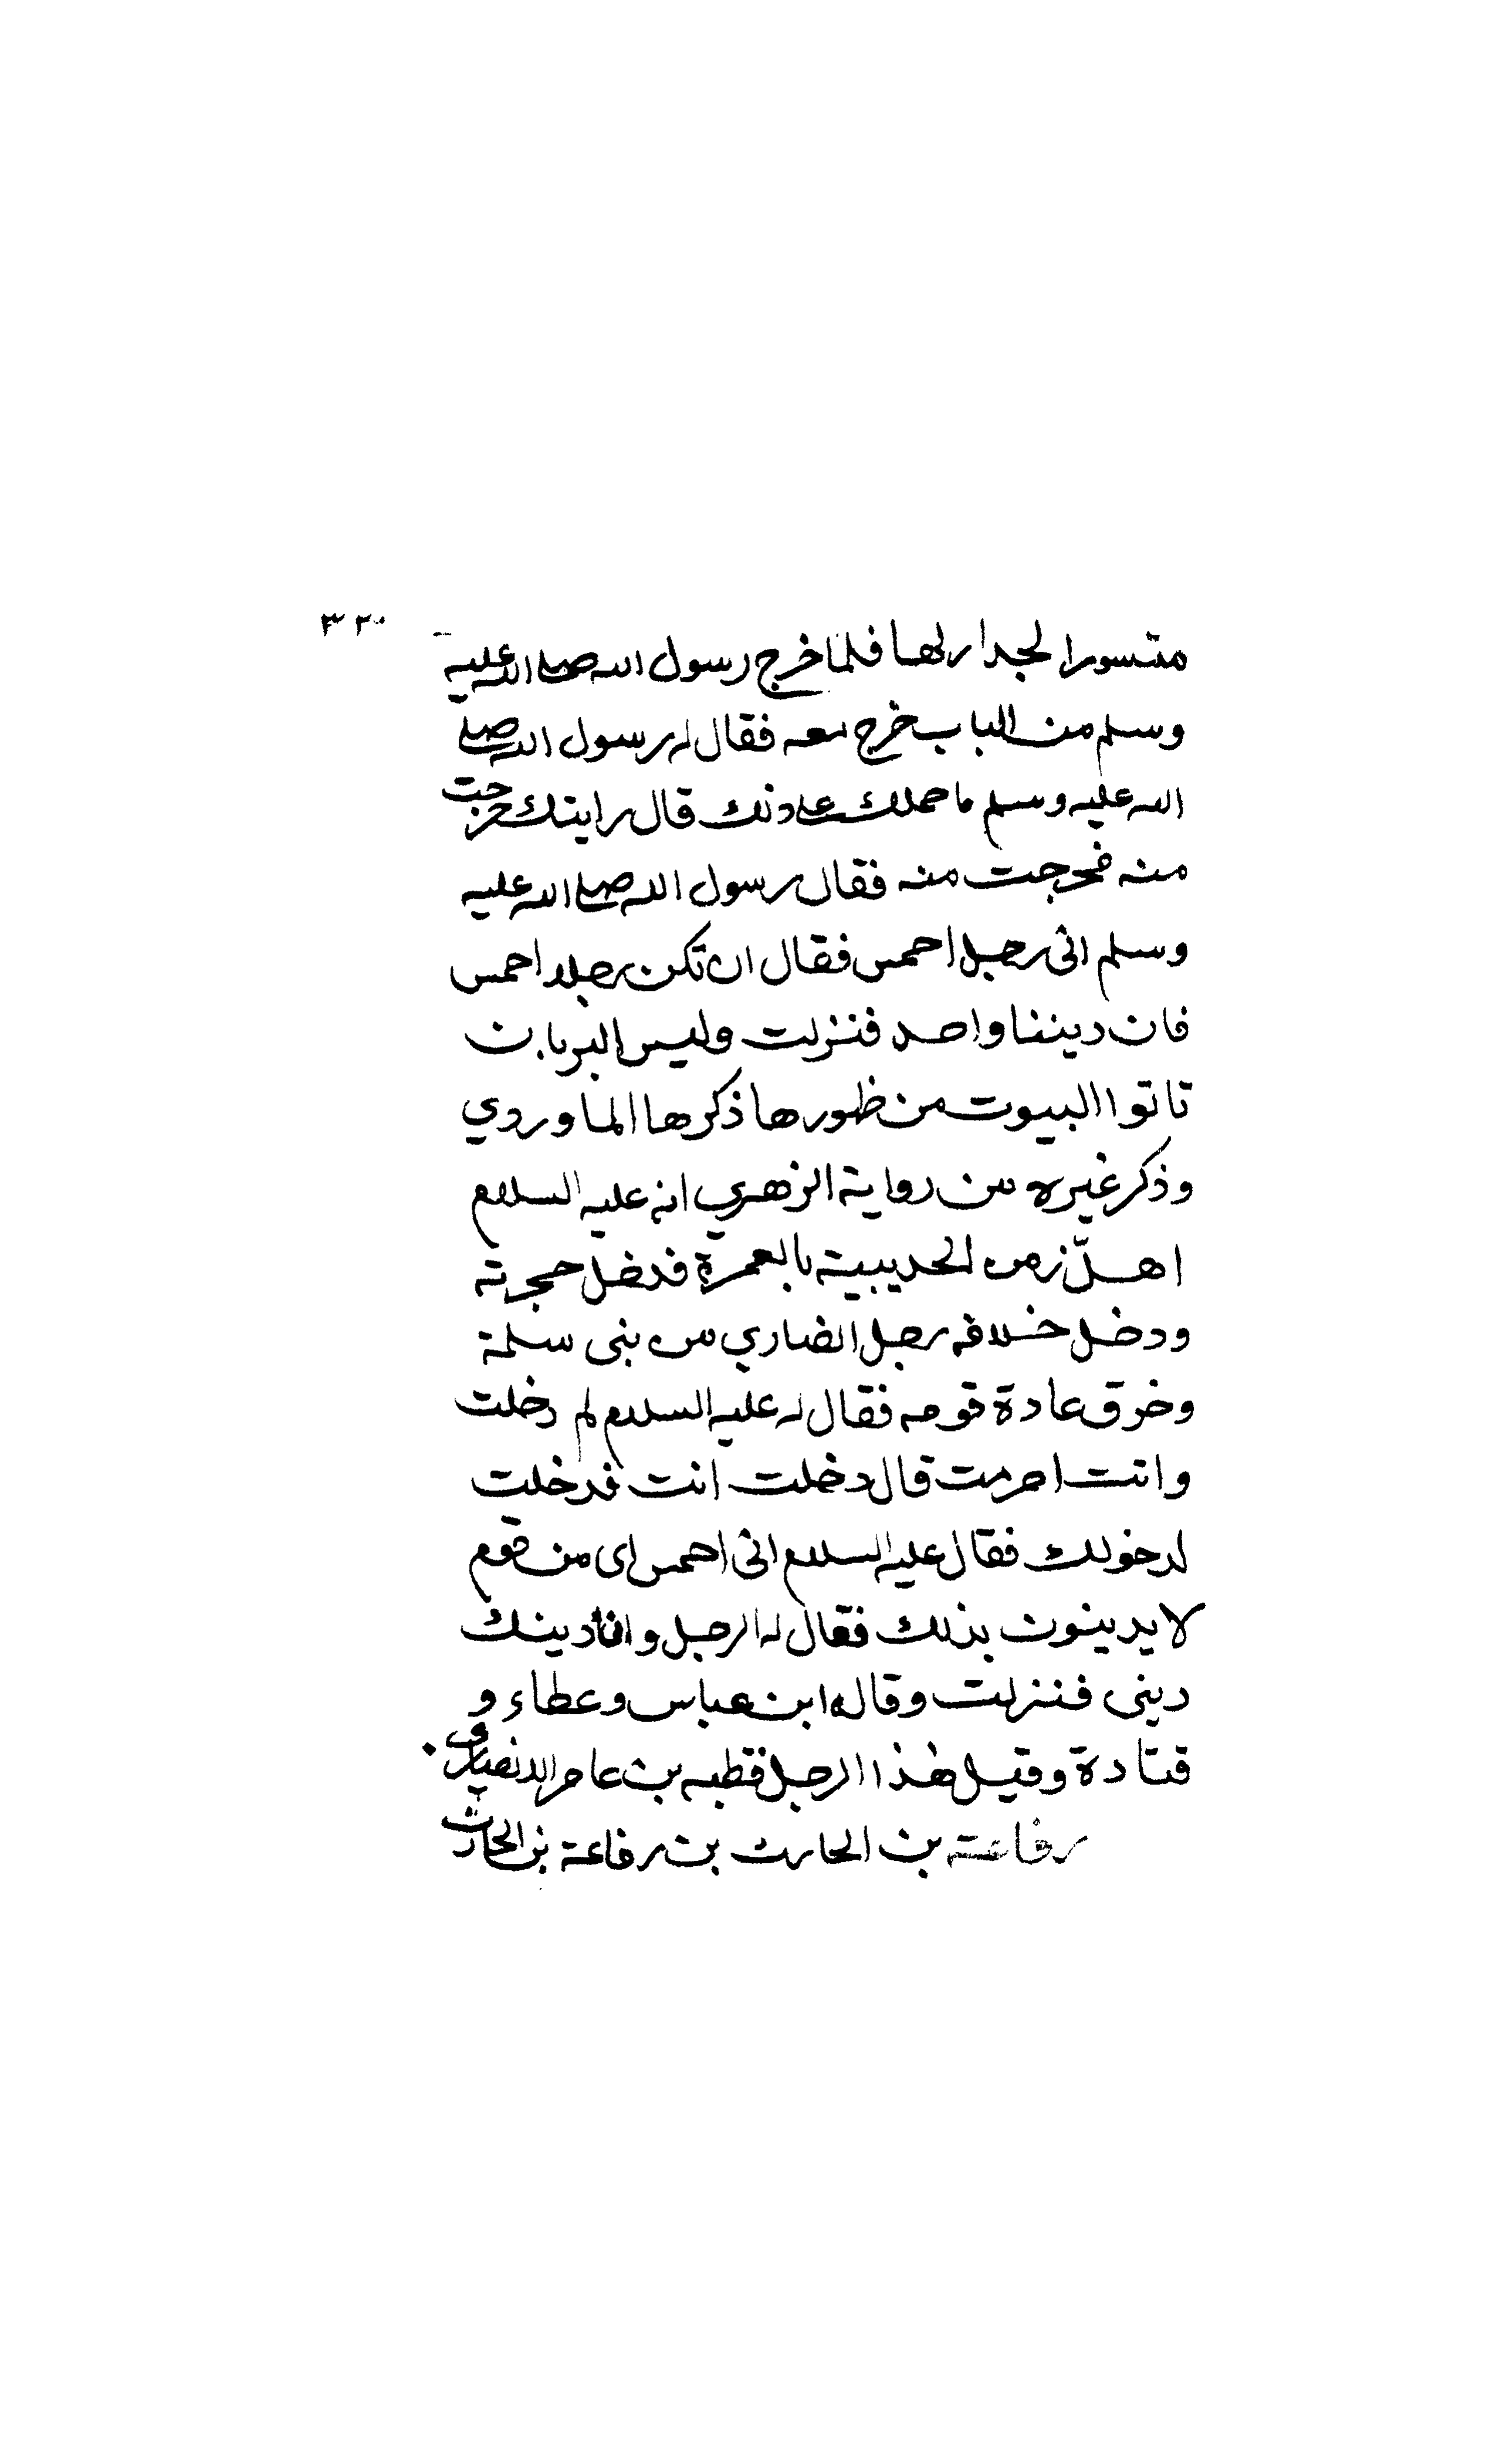 ٣٢٠
متسورا لجدار لها فلما خرج رسول الله صلى الله عليه
وسلم من الباب خرج معه فقال له رسول الله صلى
الله عليه وسلم ما حملك على ذلك قال رايتك خرجت
منه فخرجت منه فقال رسول الله صلى الله عليه
وسلم انى رجل احمس فقال ان تكن رجلا احمس
فان ديننا واحد فنزلت وليس البر بان
تاتوا البيوت من ظهورها ذكرها الماوردي
وذكر غيره من رواية الزهري انه عليه السلام
اهلّ زمن الحديبية بالعمرة فدخل حجرته
ودخل خلافه رجل انصاري من بنى سلمة
وخرق عادة قومه فقال له عليه السلام لم دخلت
وانت احرمت قال دخلت انت فدخلت
لدخولك فقال عليه السلام انى احمس اى من قوم
لا يدينون بذلك فقال له الرجل وانا دينك
دينى فنزلت وقاله ابن عباس وعطاء و
قتادة وقيل هذا الرجل قطبه بن عامر الانصارى
رفاعة بن الحارث بن رفاعة بن الحارث